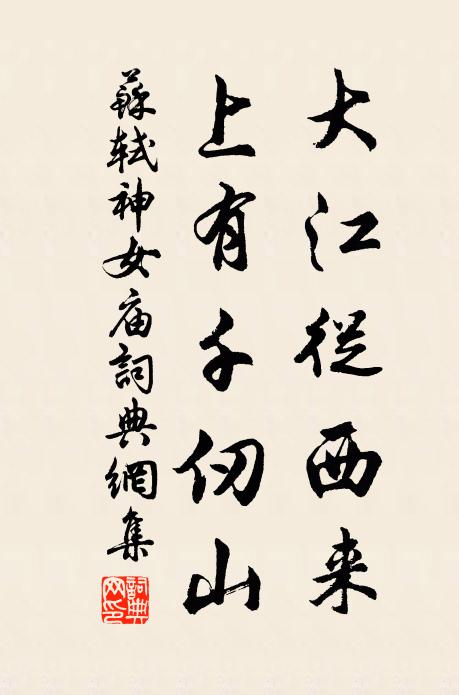 大江從西来
上有千仞山
蘇軾神女庙詞典網集
詞典网印